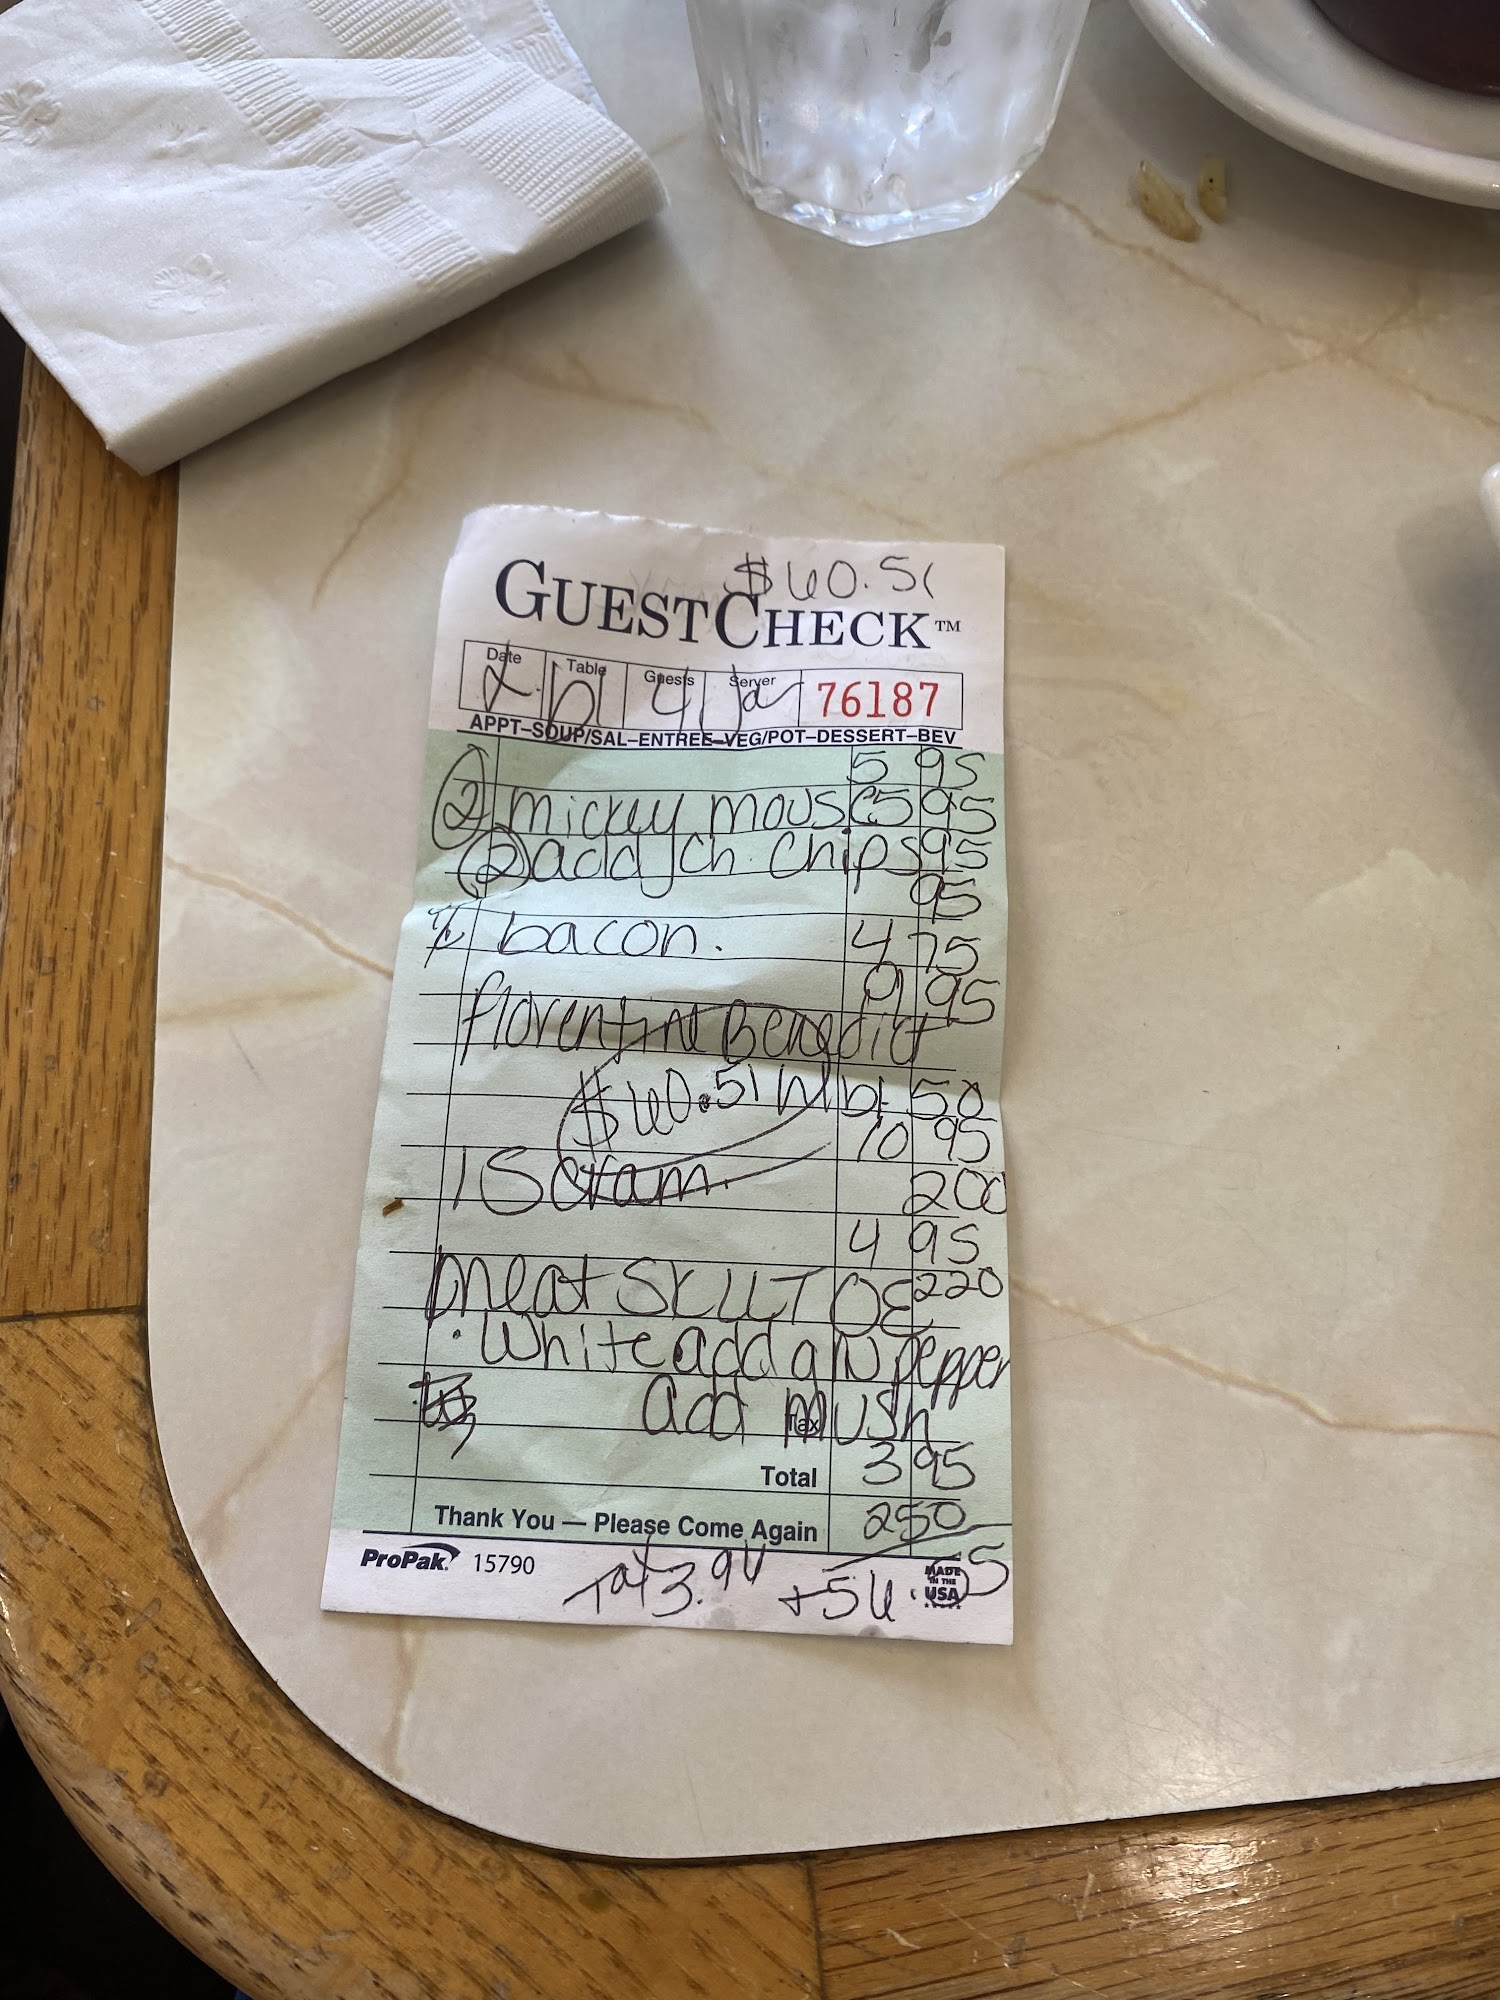 $60.51
GUESTCHECK™
Date Table Guests Server
4 76187
APPT–SOUP/SAL–ENTREE–VEG/POT–DESSERT–BEV
5 95
2 mickey mouse 5 95
2 add ch. chips 95
95
bacon. 4 75
9 95
florentine Benedict
$60.51 50
10 95
1 Scram. 200
4 95
meat SKILLT OE 220
White add gn pepper
add mush
Tax
3 95
Total
250
Thank You — Please Come Again
ProPak 15790
Tax 3.96 +56.55
MADE IN THE USA